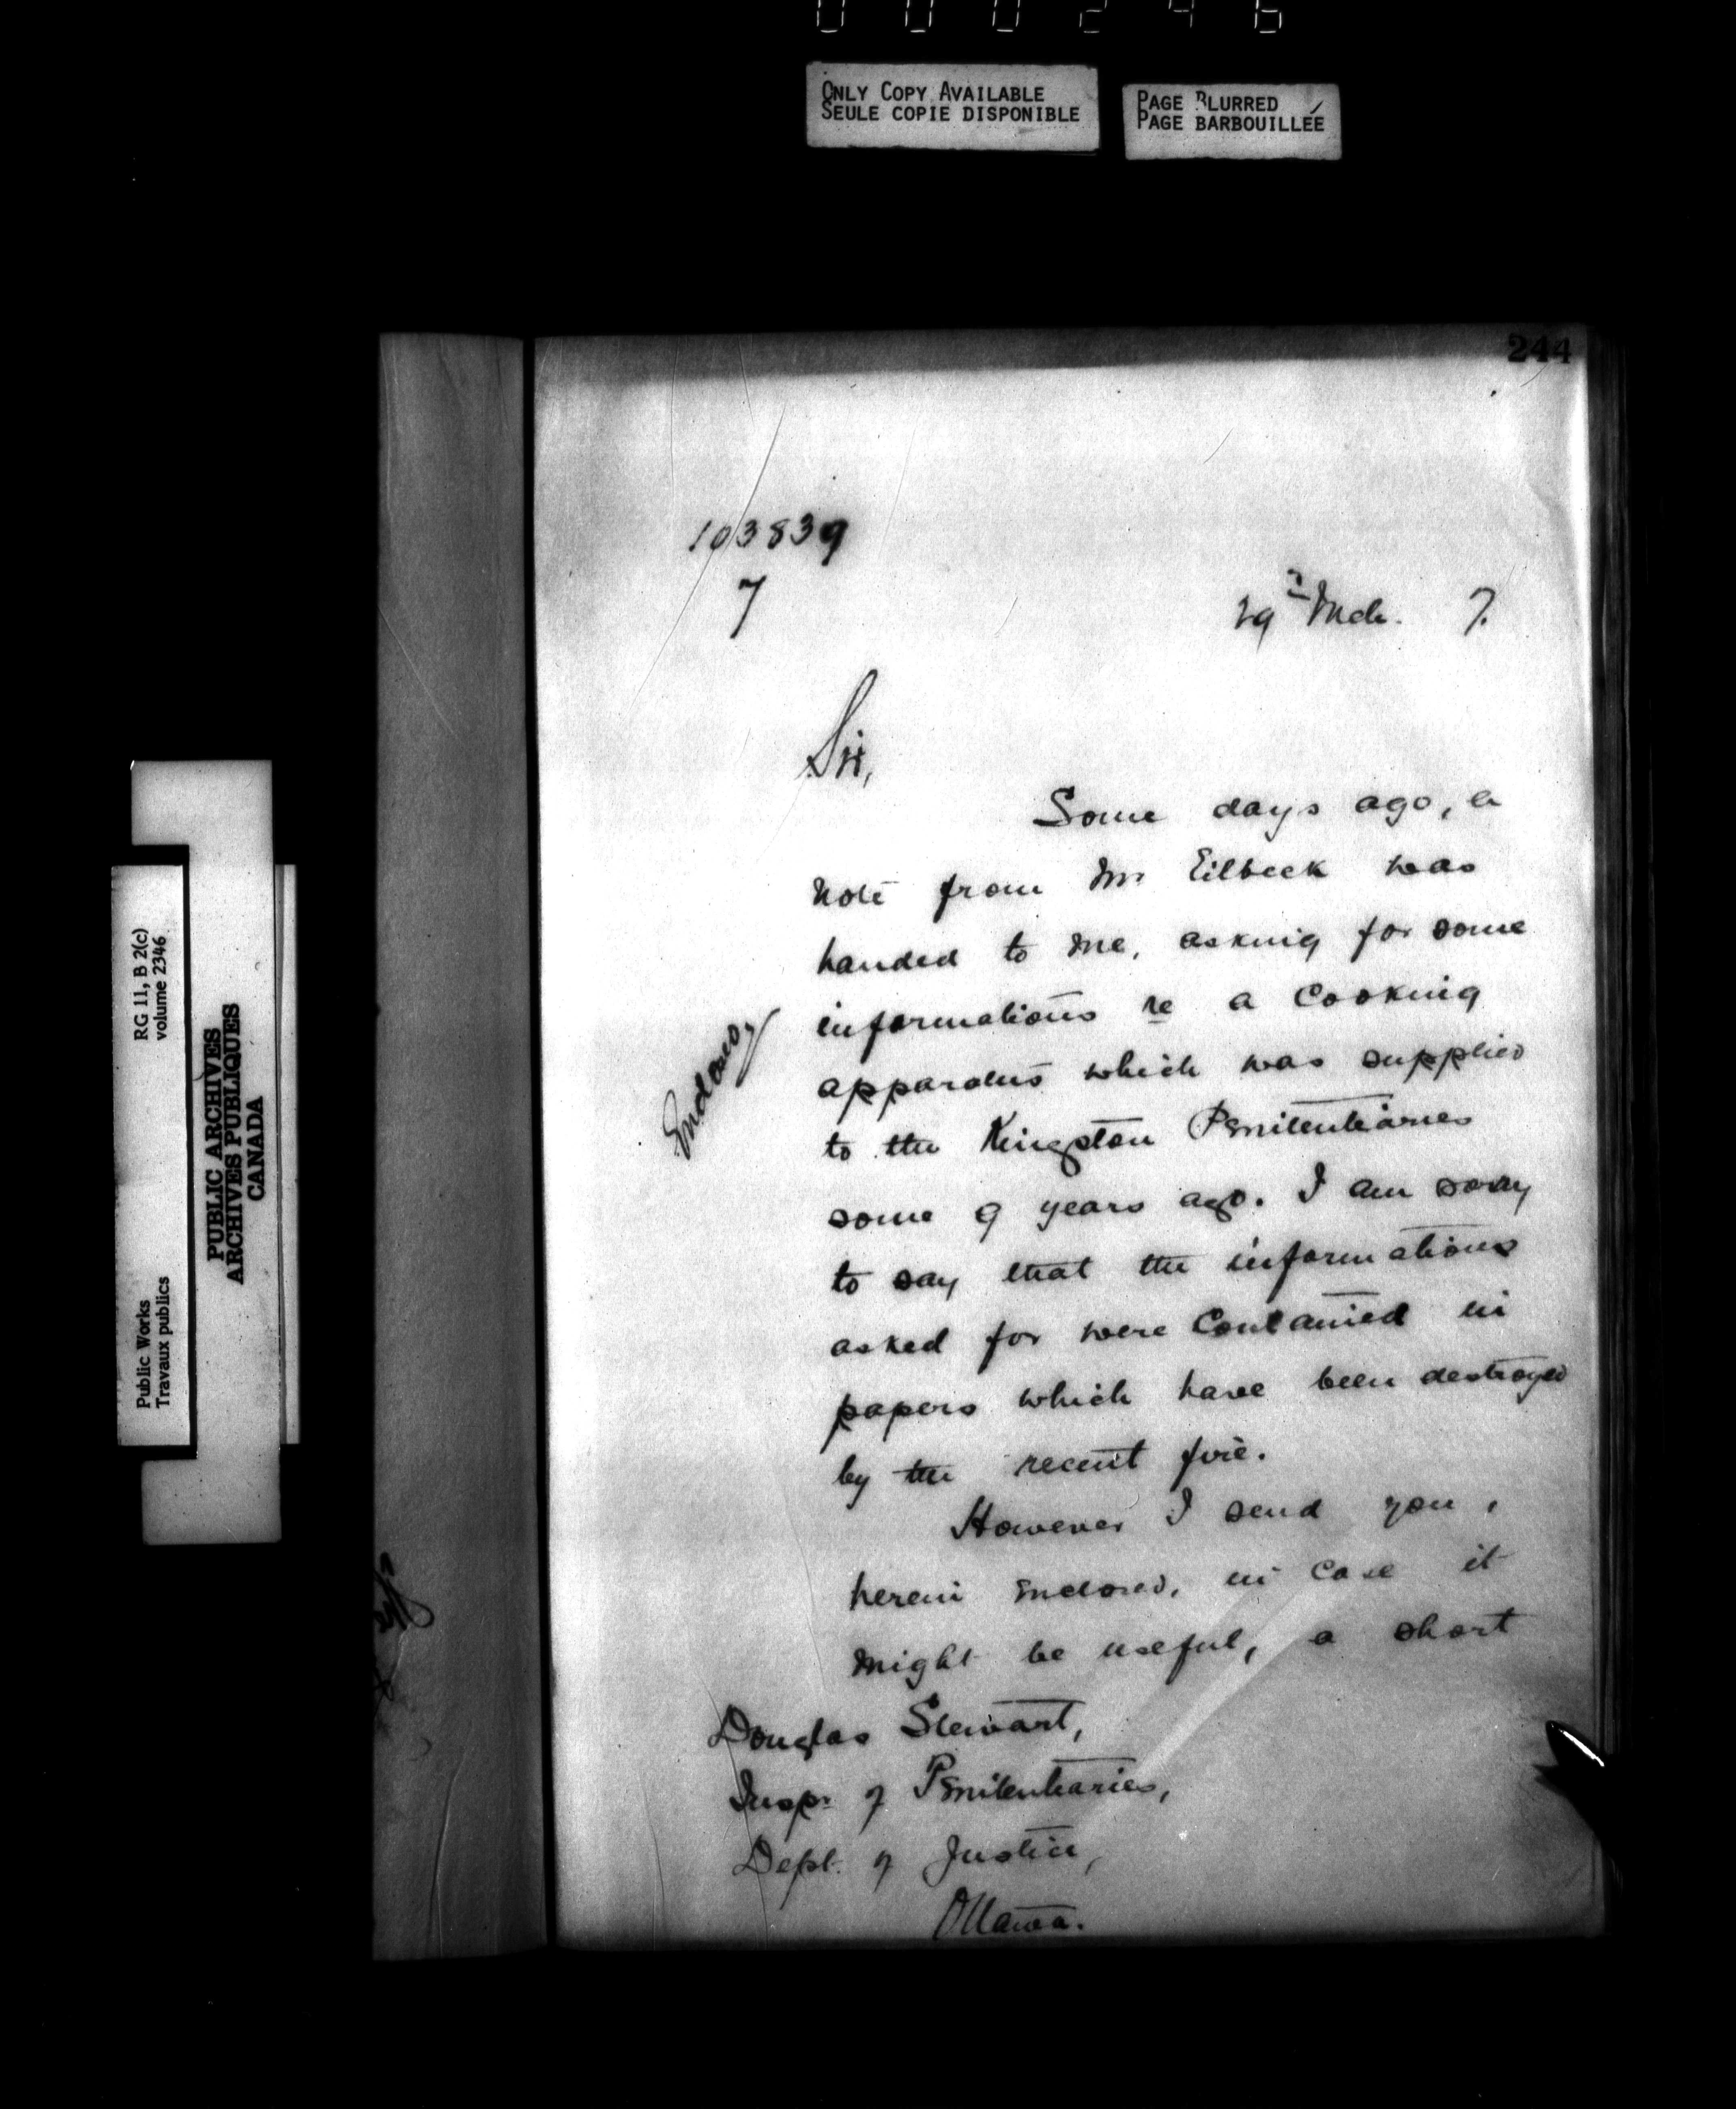 000246
ONLY COPY AVAILABLE
SEULE COPIE DISPONIBLE
PAGE BLURRED
PAGE BARBOUILLÉE
244
103839
7
29th Mch. 7.
Sir,
Some days ago, a
note from Mr Eilbeck was
handed to me, asking for some
informations re a cooking
apparatus which was supplied
to the Kingston Penitentiaries
some 9 years ago. I am sorry
to say that the informations
asked for were contained in
papers which have been destroyed
by the recent fire.
However I send you,
herein enclosed, in case it
might be useful, a short
Douglas Stewart,
Inspr of Penitentiaries,
Dept. of Justice,
Ottawa.
RG 11, B 2(c)
volume 2346
Public Works
Travaux publics
PUBLIC ARCHIVES
ARCHIVES PUBLIQUES
CANADA